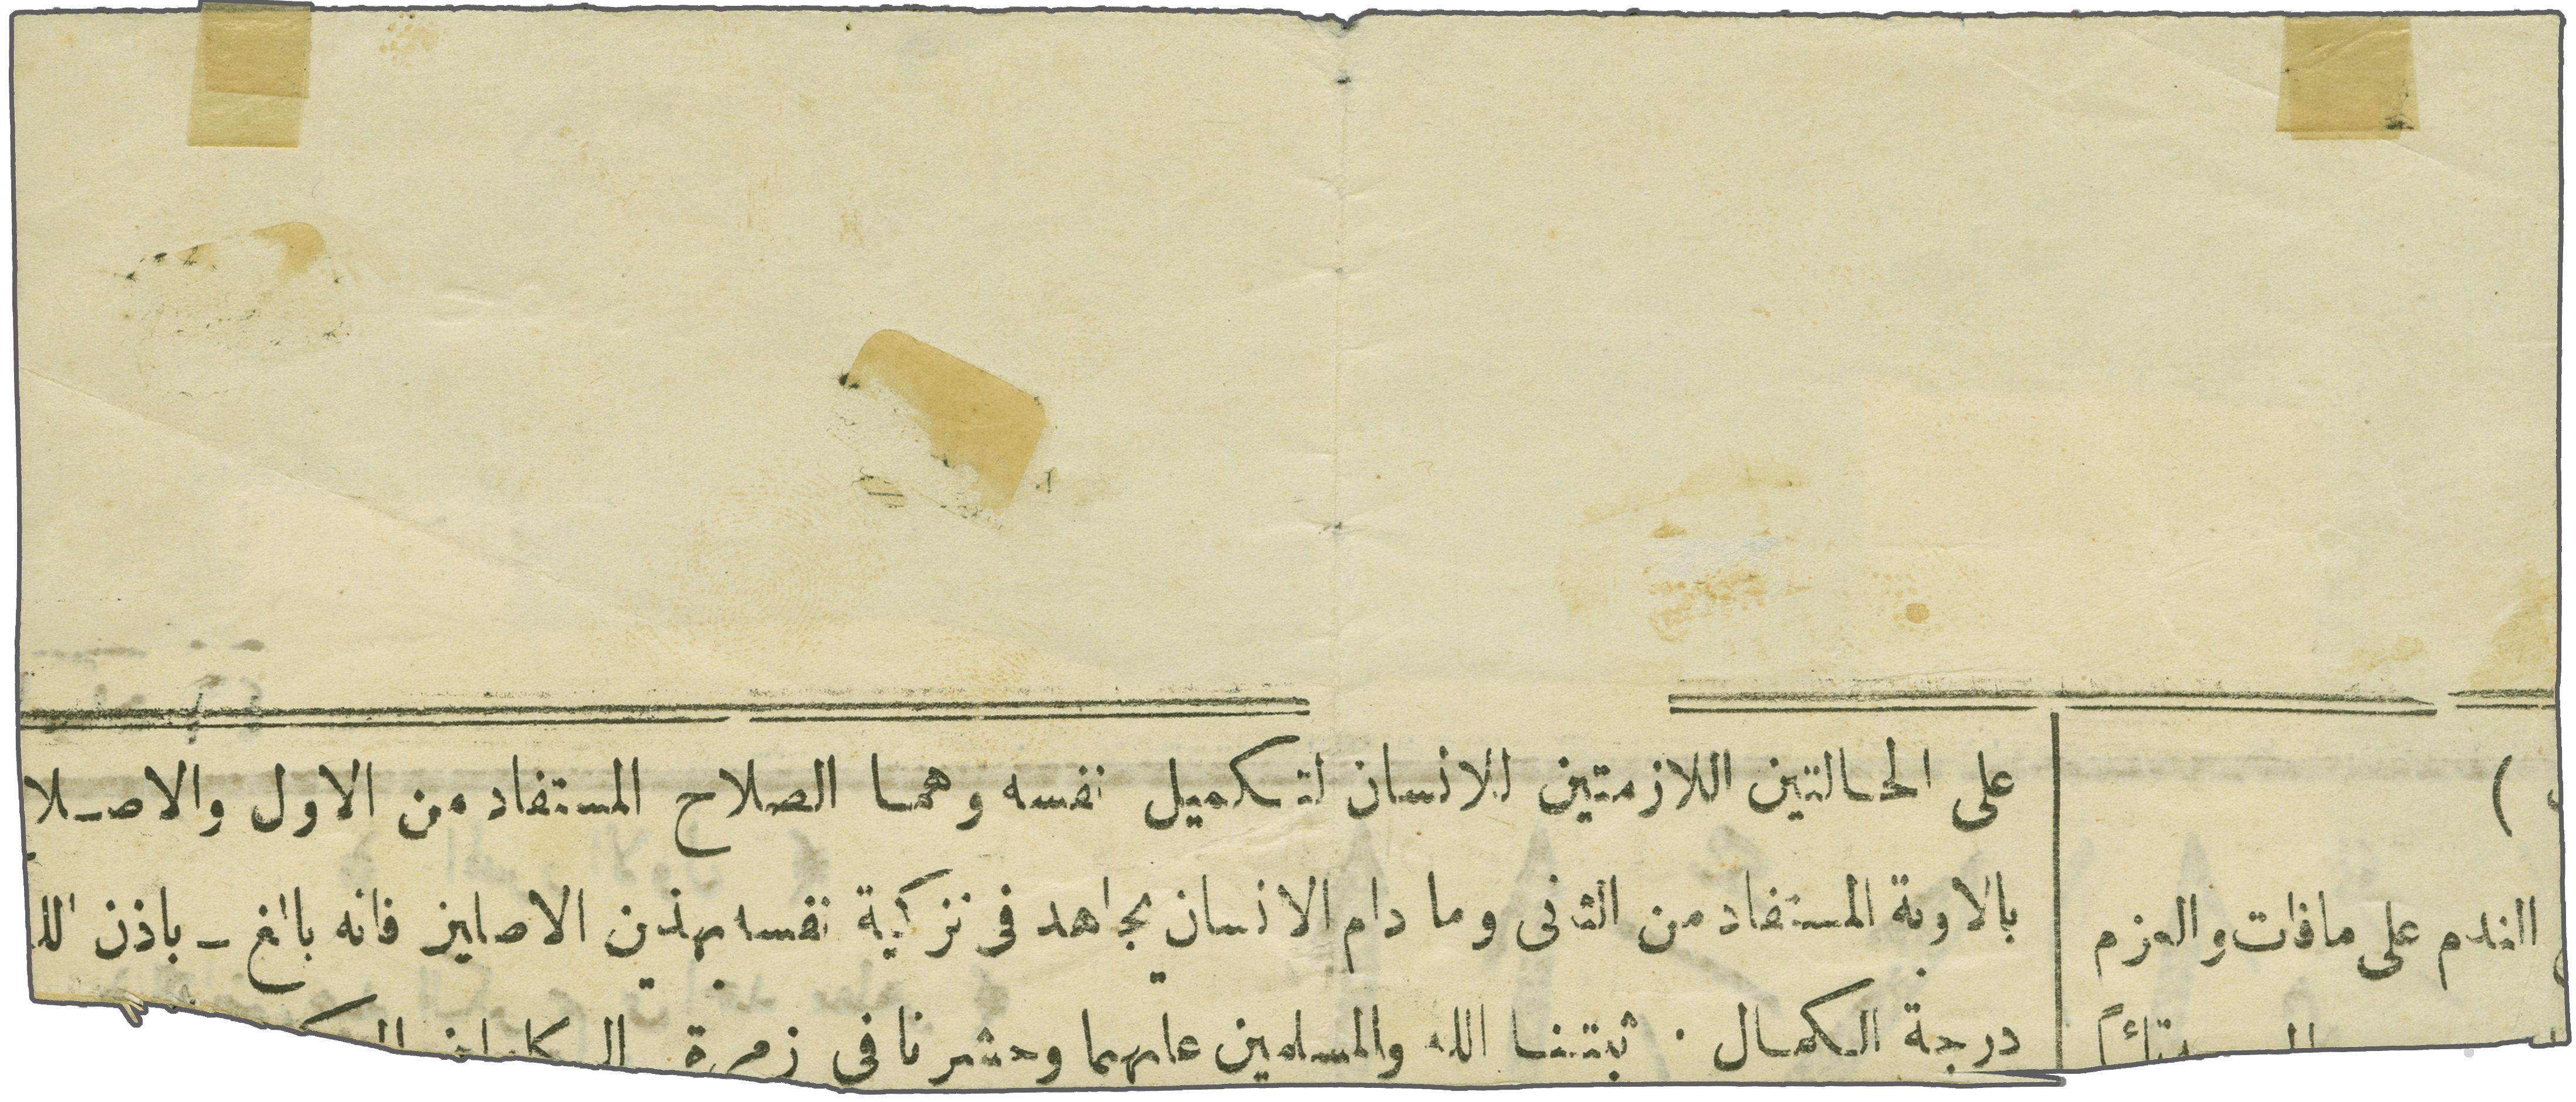 )
الندم على مافات والعزم
على الحالتين اللازمتين للانسان لتكميل نفسه وهما الصلاح المستفاد من الاول والاصلا
بالاوبة المستفاد من الثانى وما دام الانسان يجاهد فى تزكية نفسه بهذين الاصلين فانه بالغ - باذن الله
درجة الكمال . ثبتنا الله والمسلمين عليهما وحشرنا فى زمرة